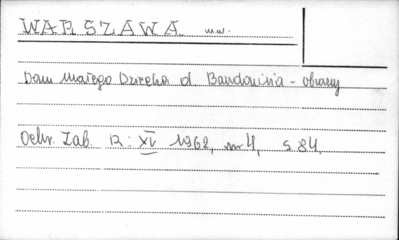 WARSZAWA m.w.
Dom Małego Dziecka d. Baudouin'a - obrazy
Ochr. Zab. R: XV 1962, nr 4, s. 84.